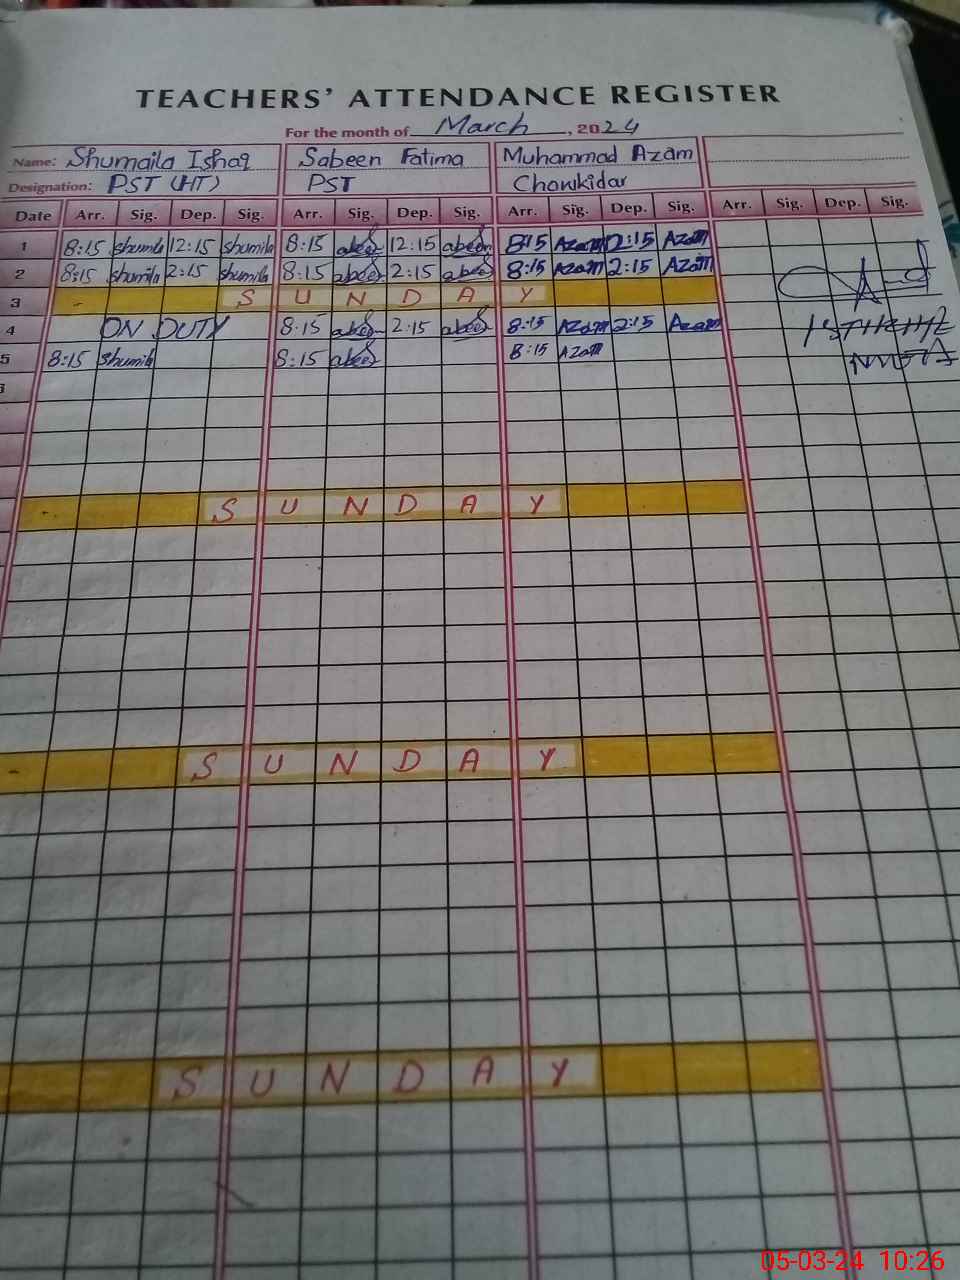 TEACHERS' ATTENDANCE REGISTER
For the month of March, 2024
Name: Shumaila Ishaq Sabeen Fatima Muhammad Azam
Designation: PST (HT) PST Chowkidar
Date Arr. Sig. Dep. Sig. Arr. Sig. Dep. Sig. Arr. Sig. Dep. Sig. Arr. Sig. Dep. Sig.
1 8:15 Shumila 12:15 Shumila 8:15 12:15 8:15 Azam 12:15 Azam
2 8:15 Shumila 2:15 Shumila 8:15 2:15 8:15 Azam 2:15 Azam
3 SUNDAY
4 ON DUTY 8:15 2:15 8:15 Azam 2:15 Azam
5 8:15 Shumila 8:15 8:15 Azam
SUNDAY
SUNDAY
SUNDAY
05-03-24 10:26